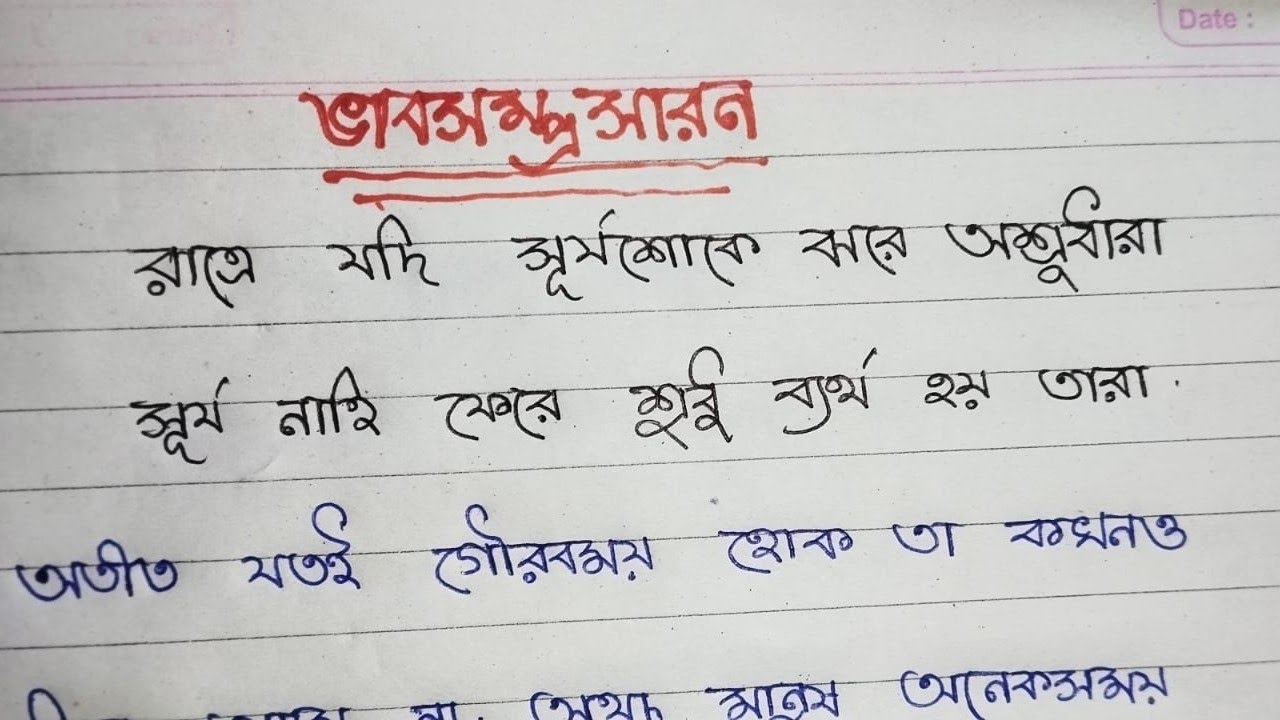 Date :
ভাবসম্প্রসারন
রাত্রে যদি সূর্যশোকে ঝরে অশ্রুধারা
সূর্য নাহি ফেরে শুধু ব্যর্থ হয় তারা.
অতীত যতই গৌরবময় হোক তা কখনও
না. অথচ মানুষ অনেকসময়